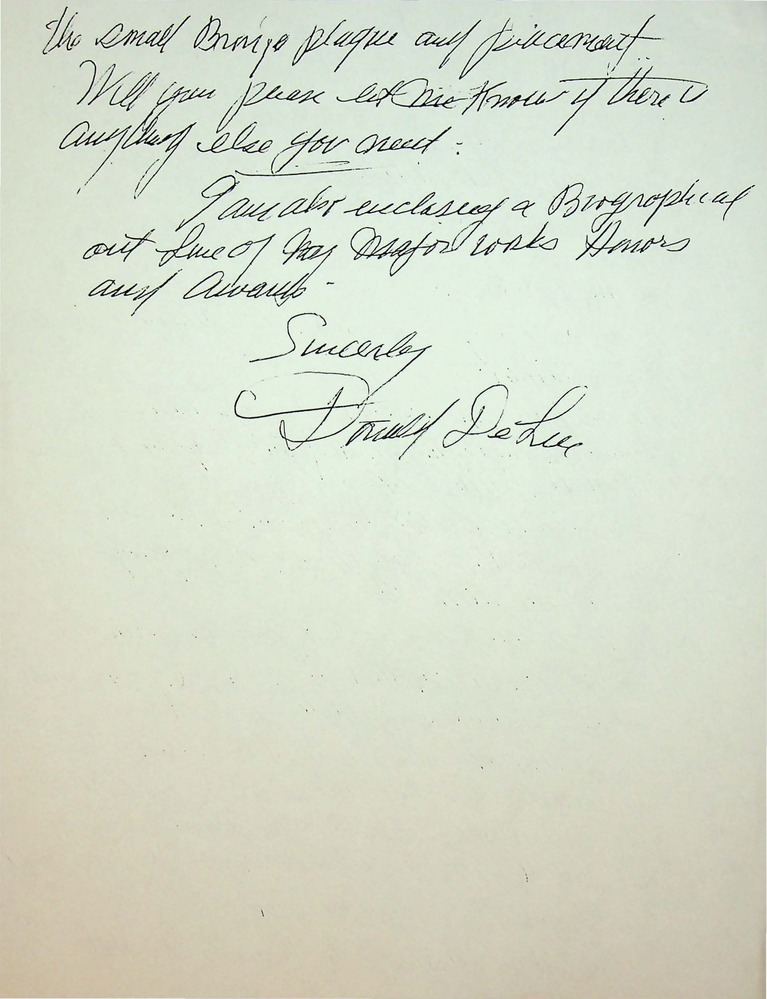 the small Bronze plaque and placement
Will you please let me Know if there is
anything else you need.
I am also enclosing a Biographical
out line of my Major works Honors
and Awards.
Sincerley
Donald De Lue